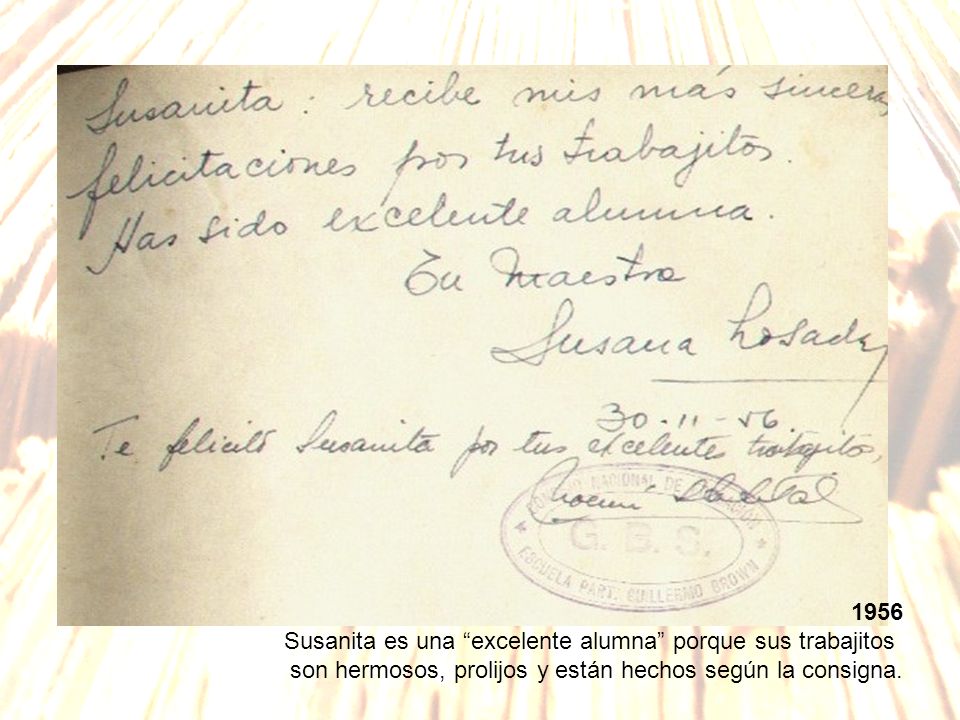 Susanita: recibe mis más sincera
felicitaciones por tus trabajitos.
Has sido excelente alumna.
Tu Maestra
Susana Losada
30-11-56.
Te felicito Susanita por tus excelentes trabajitos,
NACIONAL DE
G. B. S.
ESCUELA PART. GUILLERMO BROWN
1956
Susanita es una “excelente alumna” porque sus trabajitos
son hermosos, prolijos y están hechos según la consigna.